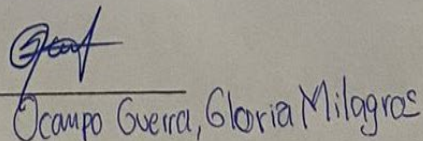 Ocampo Guerra, Gloria Milagros